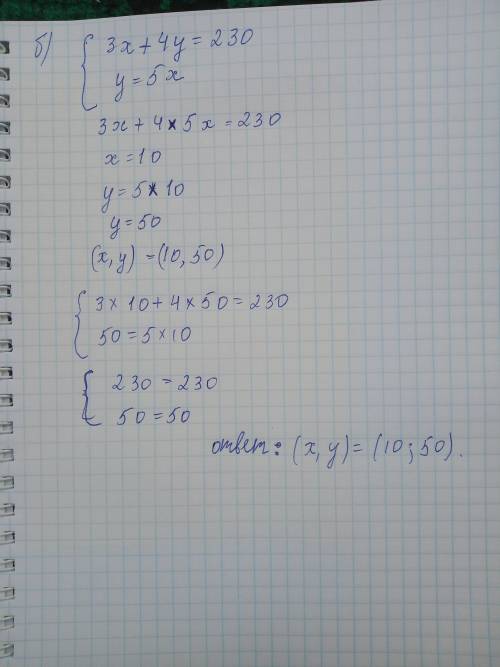 б) { 3x + 4y = 230
y = 5x
3x + 4 × 5x = 230
x = 10
y = 5 × 10
y = 50
(x, y) = (10, 50)
{ 3 × 10 + 4 × 50 = 230
50 = 5 × 10
{ 230 = 230
50 = 50
ответ: (x, y) = (10; 50).